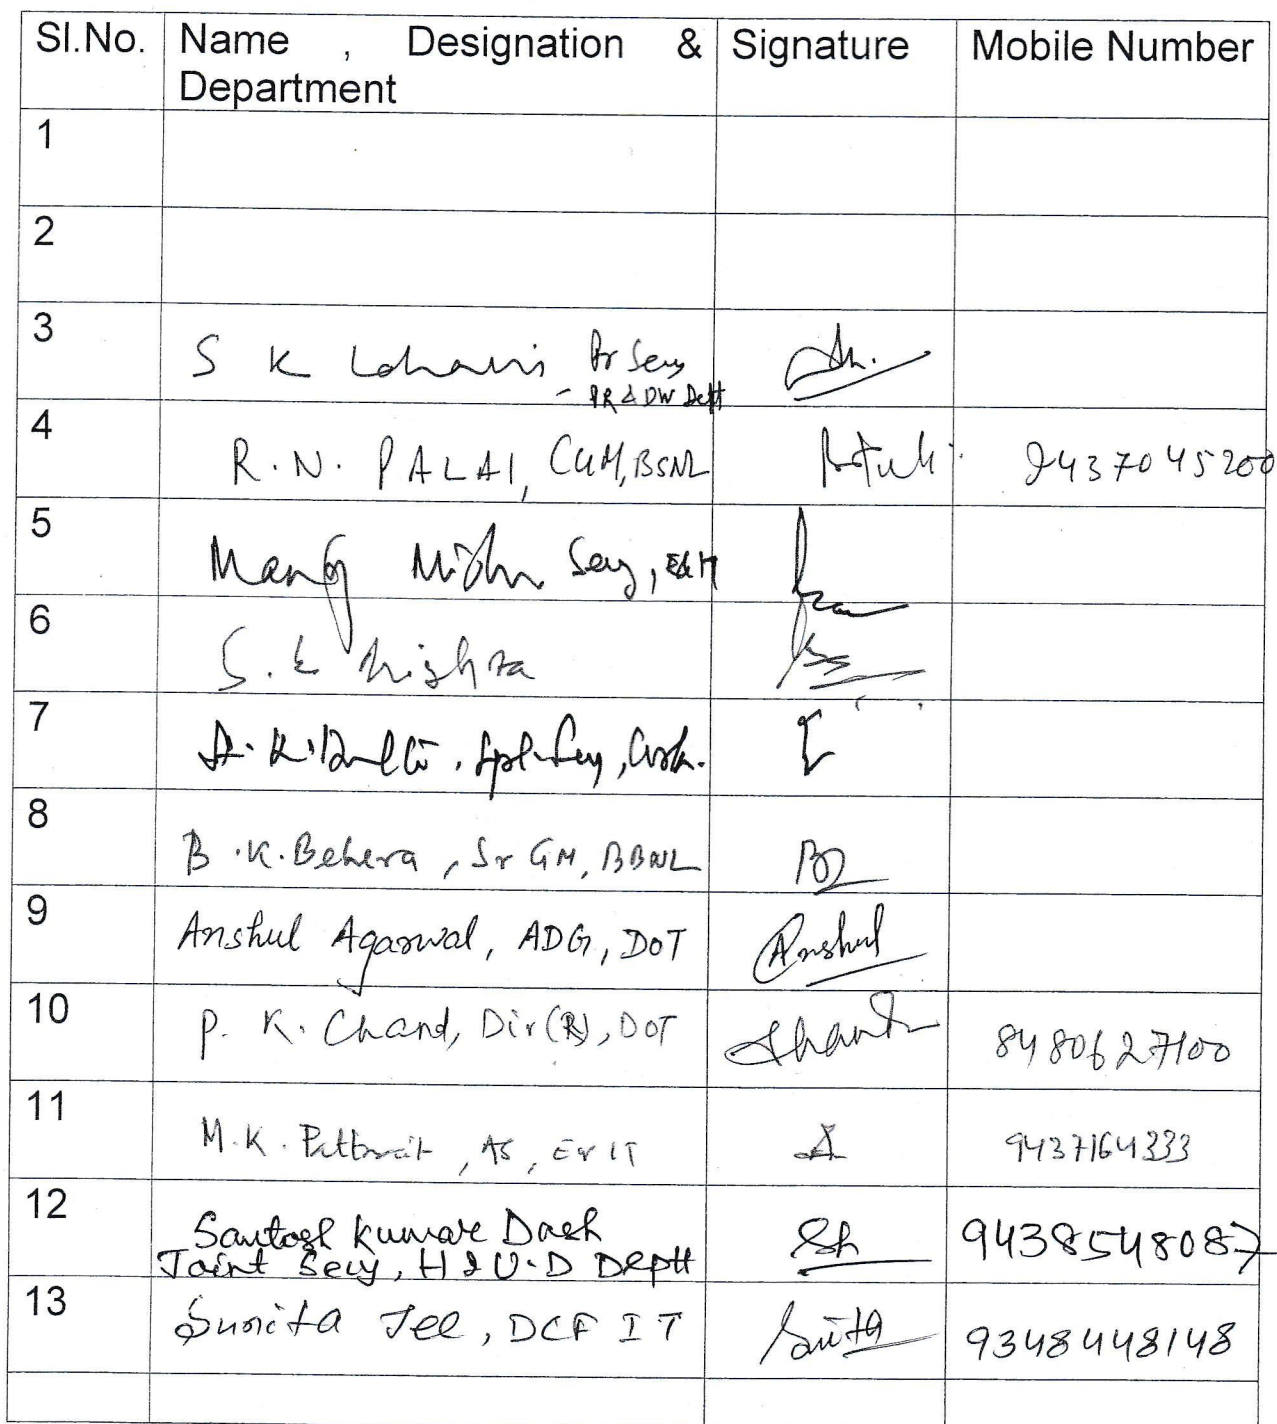 Sl.No. Name , Designation & Department Signature Mobile Number
1
2
3 S K Lohani Pr Secy
- PR & DW Deptt
4 R.N. PALAI, CGM, BSNL 9437045200
5 Manoj Mishra Secy, E&IT
6 S. K Mishra
7 Spl. Secy,
8 B.K. Behera, Sr GM, BBNL
9 Anshul Agarwal, ADG, DoT Anshul
10 P. K. Chand, Dir(R), DOT 8480627100
11 M.K. AS, E&IT 9437164333
12 Santosh Kumar Dash
Joint Secy, H & U.D Deptt 9438548087
13 Sunita Jee, DCF IT 9348448148